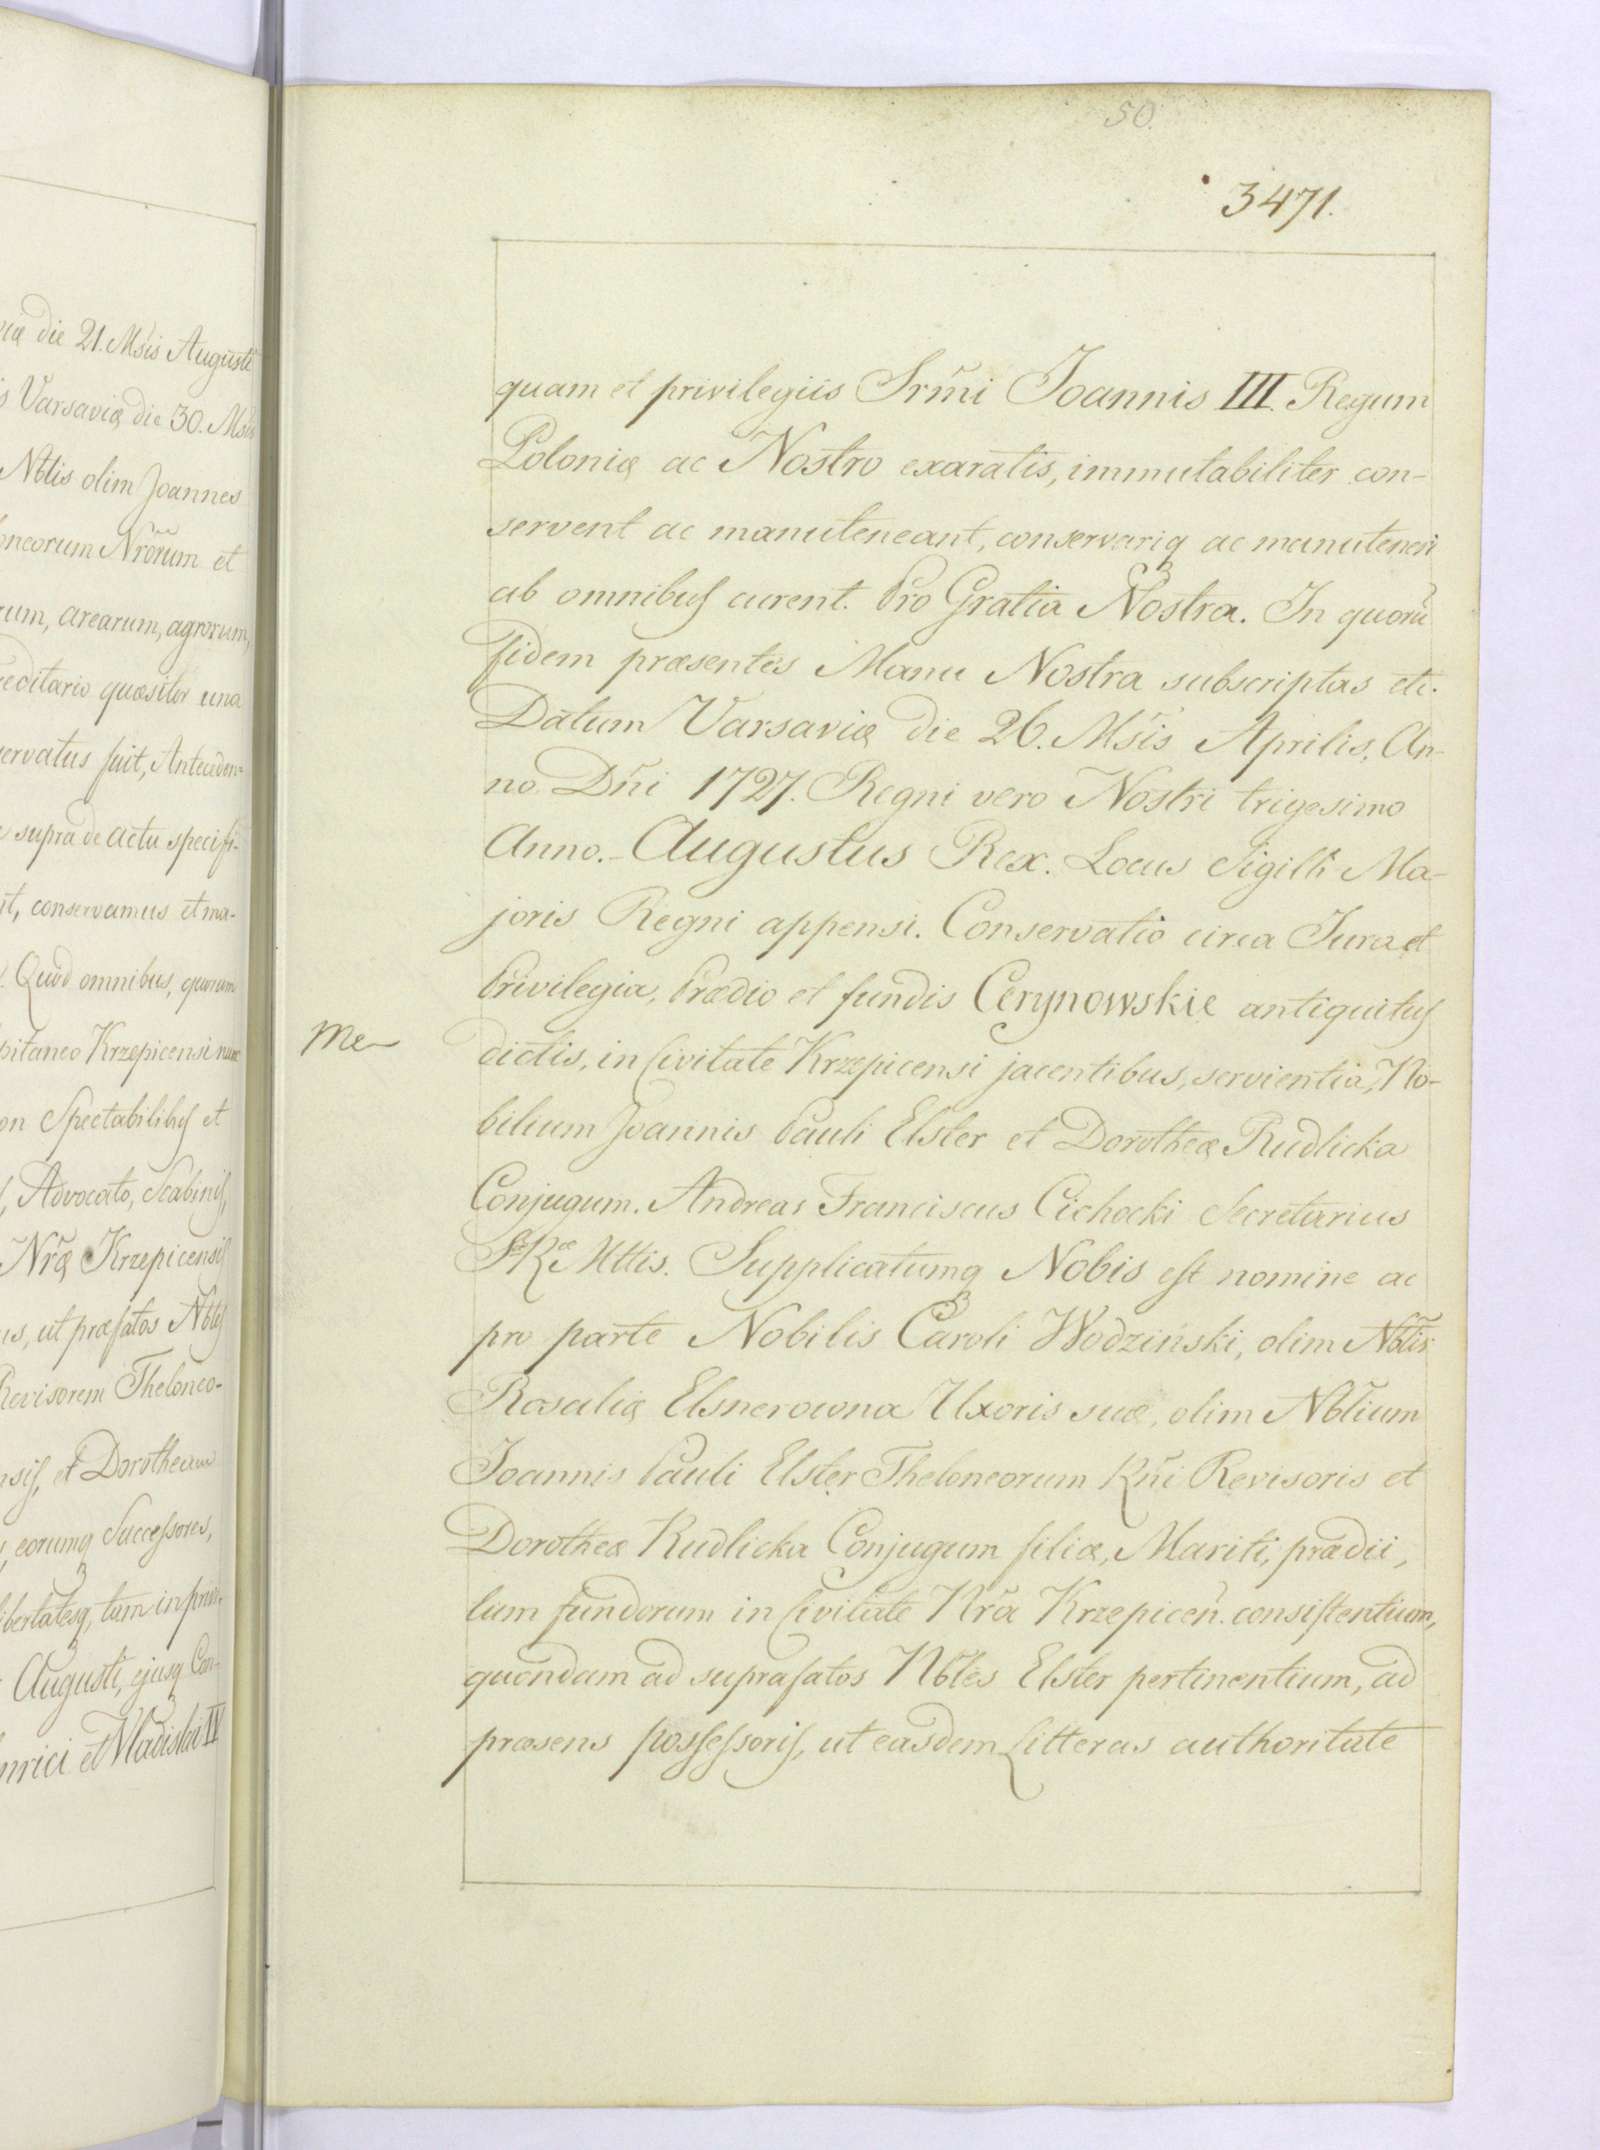 50.
3471.
quam et privilegiis Srm̃i Joannis III. Regum
Poloniæ ac Nostro exaratis, immutabiliter con-
servent ac manuteneant, conservariq ac manuteneri
ab omnibus curent. Pro Gratia Nostra. In quorũ
fidem præsentes Manu Nostra subscriptas etc.
Datum Varsaviæ die 26. Msis Aprilis, An-
no Dñi 1727. Regni vero Nostri trigesimo
Anno. - Augustus Rex. Locus Sigilli Ma-
joris Regni appensi. Conservatio circa Jura et
Privilegia, Prædio et fundis Cerynowskie antiquitus
dictis, in Civitate Krzepicensi jacentibus, servientia, No-
bilium Joannis Pauli Elsler et Dorotheæ Rudlicka
Conjugum. Andreas Franciscus Cichocki Secretarius
SRæ Mttis. Supplicatumq Nobis est nomine ac
pro parte Nobilis Caroli Wodziński, olim Nblis
Rosaliæ Elsnerowna Uxoris suæ, olim Nblium
Joannis Pauli Elsler Theloneorum Rñi Revisoris et
Dorotheæ Rudlicka Conjugum filiæ, Mariti, prædii,
tum fundorum in Civitate Nrã Krzepiceñ. consistentium,
quondam ad suprafatos Nbles Elsler pertinentium, ad
præsens possessoris, ut easdem Litteras authoritate
Me
die 21. Msis Augusti
Varsaviæ die 30. Msis
Nblis olim Joannes
Nrõrum et
arearum, agrorum,
quæsitor una
fuit, Anteceden=
supra de actu specifi-
conservamus et ma-
Quod omnibus, quorum
Krzepicensi nunc
Spectabilibus et
Advocato, Scabinis,
Nræ Krzepicensis
ut præfatos Nbles
Revisorem Theloneo-
et Dorotheam
eorumq Successores,
tum in privi-
Augusti, ejusq Con-
et Vladislai IV